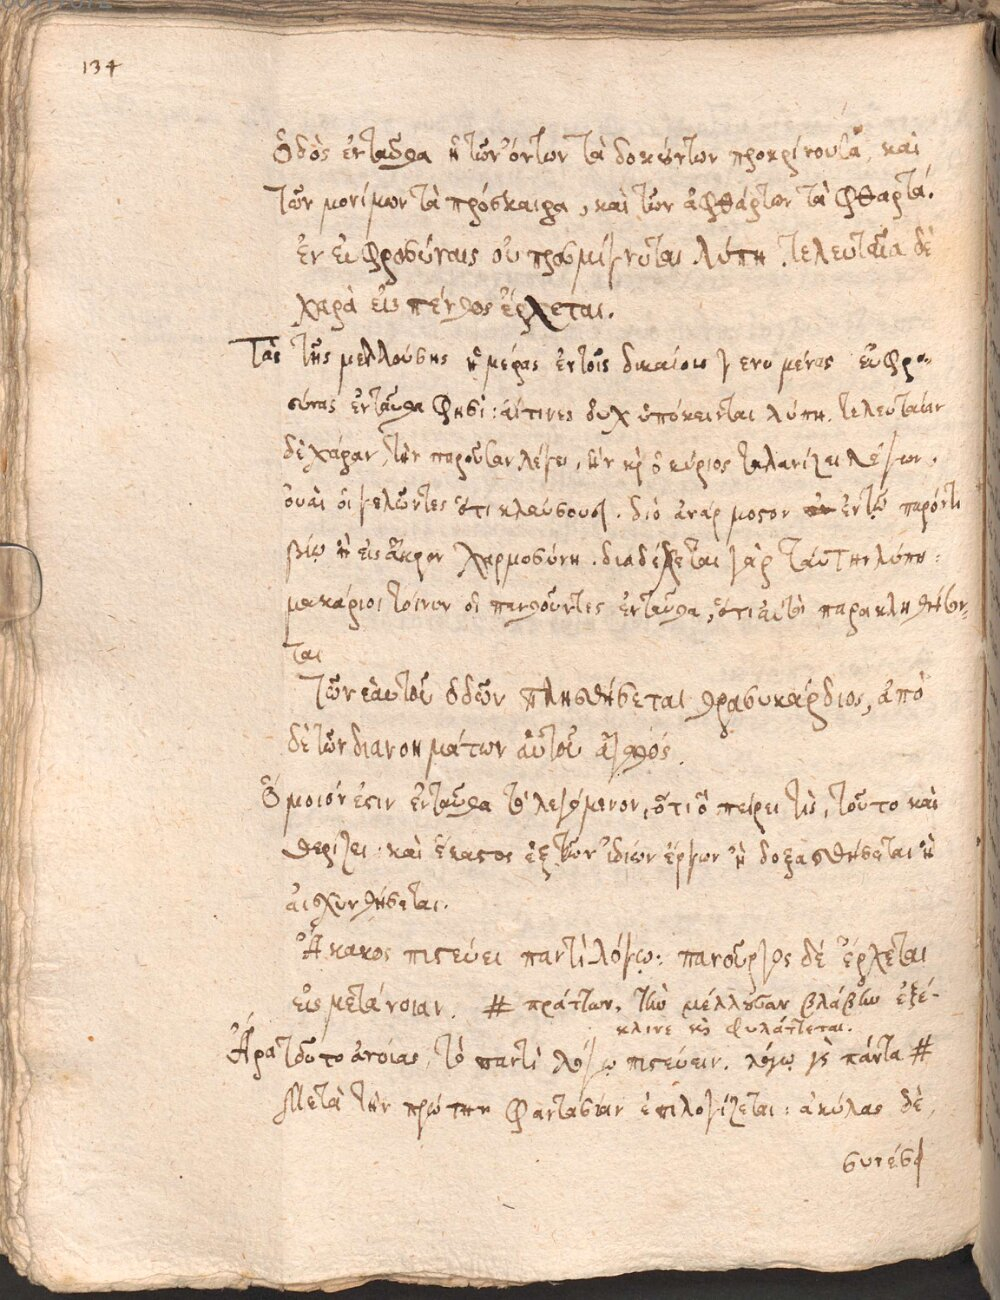 134
ὁδὸς ἐνταῦθα ἡ τῶν ὄντων τὰ δοκούντων προκρίνουσα, καὶ
τῶν μονίμων τὰ πρόσκαιρα, καὶ τῶν ἀφθάρτων τὰ φθαρτά.
ἐν εὐφροσύναις οὐ προσμίγνυται λύπη. τελευταία δὲ
χαρὰ εἰς πένθος ἔρχεται.
Τὰς τῆς μελλούσης ἡμέρας ἐν τοῖς δικαίοις γενομένας εὐφρο-
σύνας ἐνταῦθα φησί: αἵτινες οὐχ ὑπόκεινται λύπη. τελευταίαν
δὲ χάραν, τὴν παροῦσαν λέγει, ἣν κὶ ὁ κύριος ταλανίζει λέγων.
οὐαὶ οἱ γελῶντες ὅτι κλαύσουσι. διὸ ἀνάρμοστον ἐν τῷ παρόντι
βίῳ ἡ εἰς ἄκρον χαρμοσύνη. διαδέχεται γὰρ ταύτην λύπη:
μακάριοι τοίνυν οἱ πενθοῦντες ἐνταῦθα, ὅτι αὐτοὶ παρακληθήσον-
ται
Τῶν ἑαυτοῦ ὁδῶν πλησθήσεται θρασυκάρδιος, ἀπὸ
δὲ τῶν διανοημάτων αὐτοῦ ἀγαθός.
Ὅμοιόν ἐστιν ἐνταῦθα τὸ λεγόμενον, ὅτι ὃ σπείρει τὶς, τοῦτο καὶ
θερίζει: καὶ ἕκαστος ἐξ τῶν ἰδίων ἔργων ἢ δοξασθήσεται ἢ
αἰσχυνθήσεται.
Ἄκακος πιστεύει παντὶ λόγῳ: πανοῦργος δὲ ἔρχεται
εἰς μετάνοιαν. # πράττων, τὴν μέλλουσαν βλάβην ἐξέ-
κλινε κὶ φυλάττεται.
Ἄρα τοῦτο ἀνοίας, τὸ παντὶ λόγῳ πιστεύειν. λόγῳ γὰρ πάντα #
Μετὰ τὴν πρώτην φαντασίαν ἐπιλογίζεται: ἀκύλας δὲ,
συνέσει